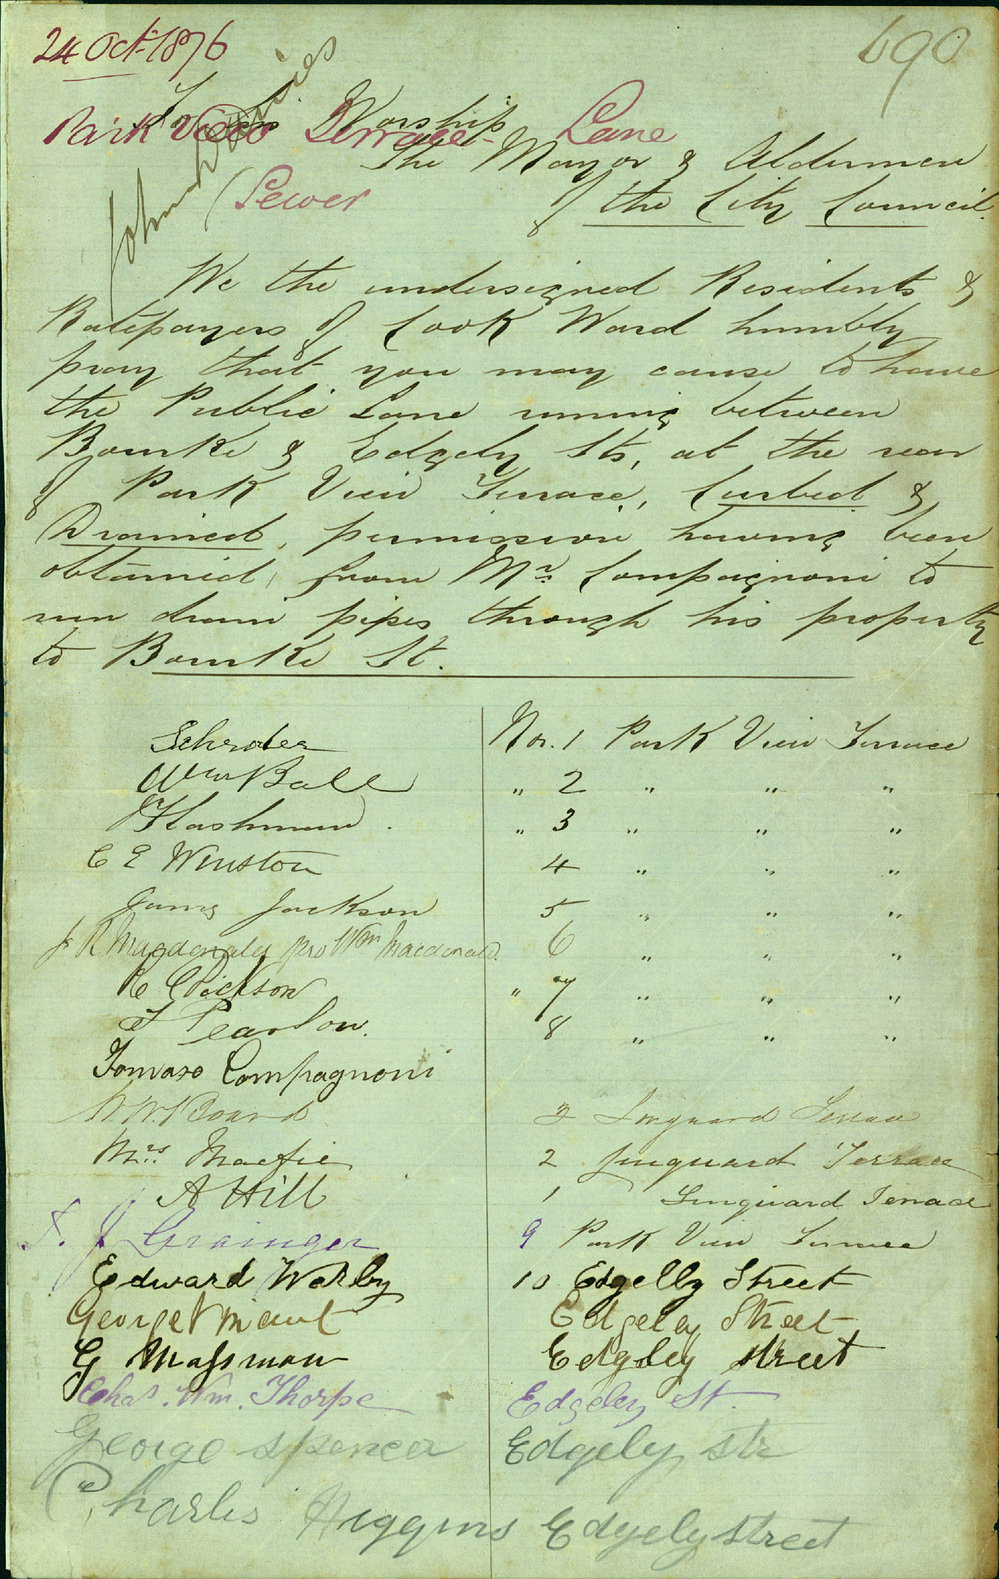 24 Oct. 1876
690
To His Worship
Park View Terrace Lane
The Mayor & Aldermen
(Sewer
of the City Council.
We the undersigned Residents &
Ratepayers of Cook Ward humbly
pray that you may cause to have
the Public Lane running between
Bourke & Edgely Sts, at the rear
of Park View Terrace, Curbed &
Drained, permission having been
obtained, from Mr. Compagnoni to
run drain pipes through his property
to Bourke St.
Schroder Nos. 1 Park View Terrace
Wm Ball " 2 " " "
Flashman " 3 " " "
C E Winston 4 " " "
James Jackson 5 " " "
J R Macdonald pro Wm Macdonald. 6 " " "
R C Dickson " 7 " " "
T Pearson. 8 " " "
Tomaso Compagnoni
Board 3 Linguard Terrace
Mrs. Macfie 2 Linguard Terrace
A Hill 1 Linguard Terrace
S. J Grainger 9 Park View Terrace
Edward Werlby 10 Edgelly Street
George Edgeley Street
G Massman Edgley street
Chas. Wm. Thorpe Edgeley St.
George Spencer Edgely str
Charles Higgins Edgely street